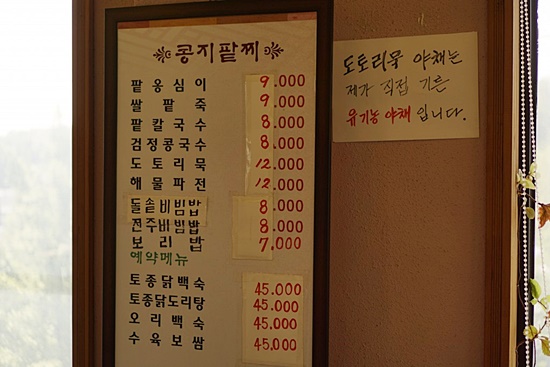 콩지팥찌
팥옹심이 9.000
쌀팥죽 9.000
팥칼국수 8.000
검정콩국수 8.000
도토리묵 12.000
해물파전 12.000
돌솥비빔밥 8.000
전주비빔밥 8.000
보리밥 7,000
예약메뉴
토종닭백숙 45.000
토종닭도리탕 45.000
오리백숙 45.000
수육보쌈 45,000
도토리묵 야채는
제가 직접 기른
유기농 야채 입니다.